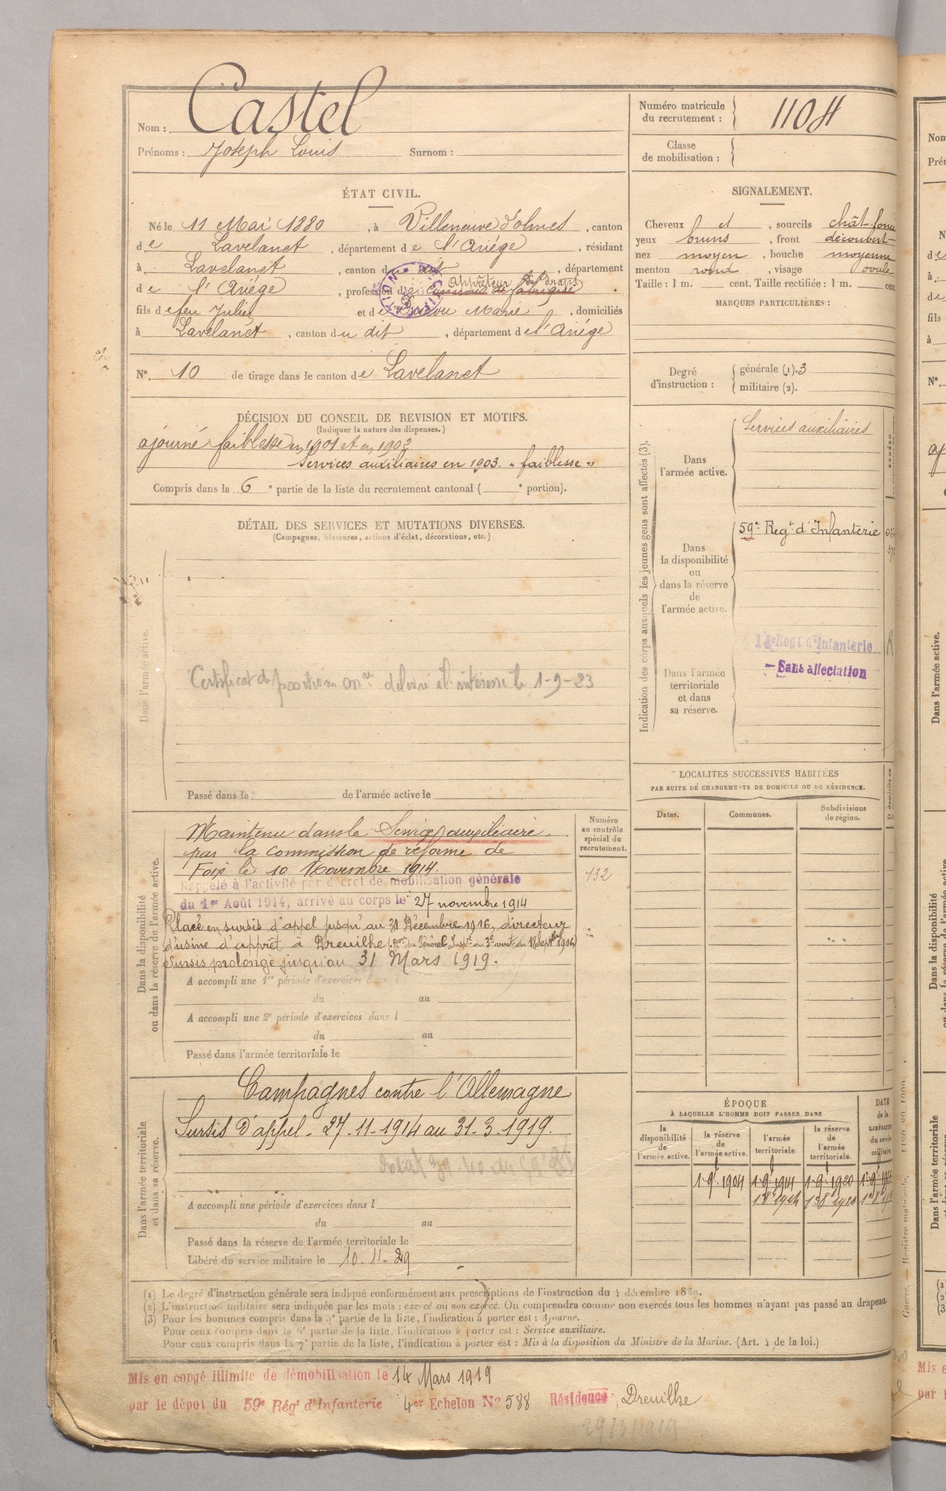 Nom : Castel
Prénoms : Joseph Louis Surnom :
Numéro matricule du recrutement : 1104
Classe de mobilisation :
ÉTAT CIVIL.
Né le 11 Mai 1880, à Villeneuve d'olmes, canton
de Lavelanet, département de l'Ariége, résidant
à Lavelanet, canton du dit, département
de l'Ariége, profession d
fils de feu Julien et de Marie, domiciliés
à Lavelanet, canton du dit, département de l'Ariége
N° 10 de tirage dans le canton de Lavelanet
SIGNALEMENT.
Cheveux et, sourcils chât. foncé
yeux bruns, front découvert
nez moyen, bouche moyenne
menton rond, visage ovale
Taille : 1 m. cent. Taille rectifiée : 1 m. cent
MARQUES PARTICULIÈRES :
Degré d'instruction : générale (1). 3
militaire (2).
DÉCISION DU CONSEIL DE REVISION ET MOTIFS.
(Indiquer la nature des dispenses.)
ajourné faiblesse en 1901 et en 1902
Services auxiliaires en 1903. « faiblesse »
Compris dans la 6e partie de la liste du recrutement cantonal ( e portion).
DÉTAIL DES SERVICES ET MUTATIONS DIVERSES.
(Campagnes, blessures, actions d'éclat, décorations, etc.)
Dans l'armée active.
Certificat de position délivré à l'intéressé le 1-9-23
Passé dans la de l'armée active le
Indication des corps auxquels les jeunes gens sont affectés (3).
Dans l'armée active.
Services auxiliaires
Dans la disponibilité ou dans la réserve de l'armée active.
59e Regt d'Infanterie
Dans l'armée territoriale et dans sa réserve.
Regt d'Infanterie
Sans affectation
LOCALITÉS SUCCESSIVES HABITÉES
PAR SUITE DE CHANGEMENTS DE DOMICILE OU DE RÉSIDENCE.
Dates. Communes. Subdivisions de région.
Dans la disponibilité ou dans la réserve de l'armée active.
Numéro au contrôle spécial du recrutement.
132
Maintenu dans le Service auxiliaire
par la commission de réforme de
Foix le 10 Novembre 1914.
Rappelé à l'activité par décret de mobilisation générale
du 1er Août 1914, arrivé au corps le 27 novembre 1914
Placé en sursis d'appel jusqu'au 31 Décembre 1916, directeur
d'usine d'apprêt à Dreuilhe
Sursis prolongé jusqu'au 31 Mars 1919.
A accompli une 1re période d'exercices dans l
du au
A accompli une 2e période d'exercices dans l
du au
Passé dans l'armée territoriale le
Dans l'armée territoriale et dans sa réserve.
Campagnes contre l'Allemagne
Sursis d'appel. 27.11.1914 au 31.3.1919.
A accompli une période d'exercices dans l
du au
Passé dans la réserve de l'armée territoriale le
Libéré du service militaire le 10-11-29
ÉPOQUE
À LAQUELLE L'HOMME DOIT PASSER DANS
la disponibilité de l'armée active. la réserve de l'armée active. l'armée territoriale. la réserve de l'armée territoriale. DATE de la LIBÉRATION du service militaire
1-9-1904 1-9-1914 1-9-1920
(1) Le degré d'instruction générale sera indiqué conformément aux prescriptions de l'instruction du 4 décembre 1889.
(2) L'instruction militaire sera indiquée par les mots : exercé ou non exercé. On comprendra comme non exercés tous les hommes n'ayant pas passé au drapeau.
(3) Pour les hommes compris dans la 5e partie de la liste, l'indication à porter est : Ajourné.
Pour ceux compris dans la 6e partie de la liste, l'indication à porter est : Service auxiliaire.
Pour ceux compris dans la 7e partie de la liste, l'indication à porter est : Mis à la disposition du Ministre de la Marine. (Art. 4 de la loi.)
Mis en congé illimité de démobilisation le 14 Mars 1919
par le dépôt du 59e Régt d'Infanterie 4er Echelon N° 588 Résidence Dreuilhe